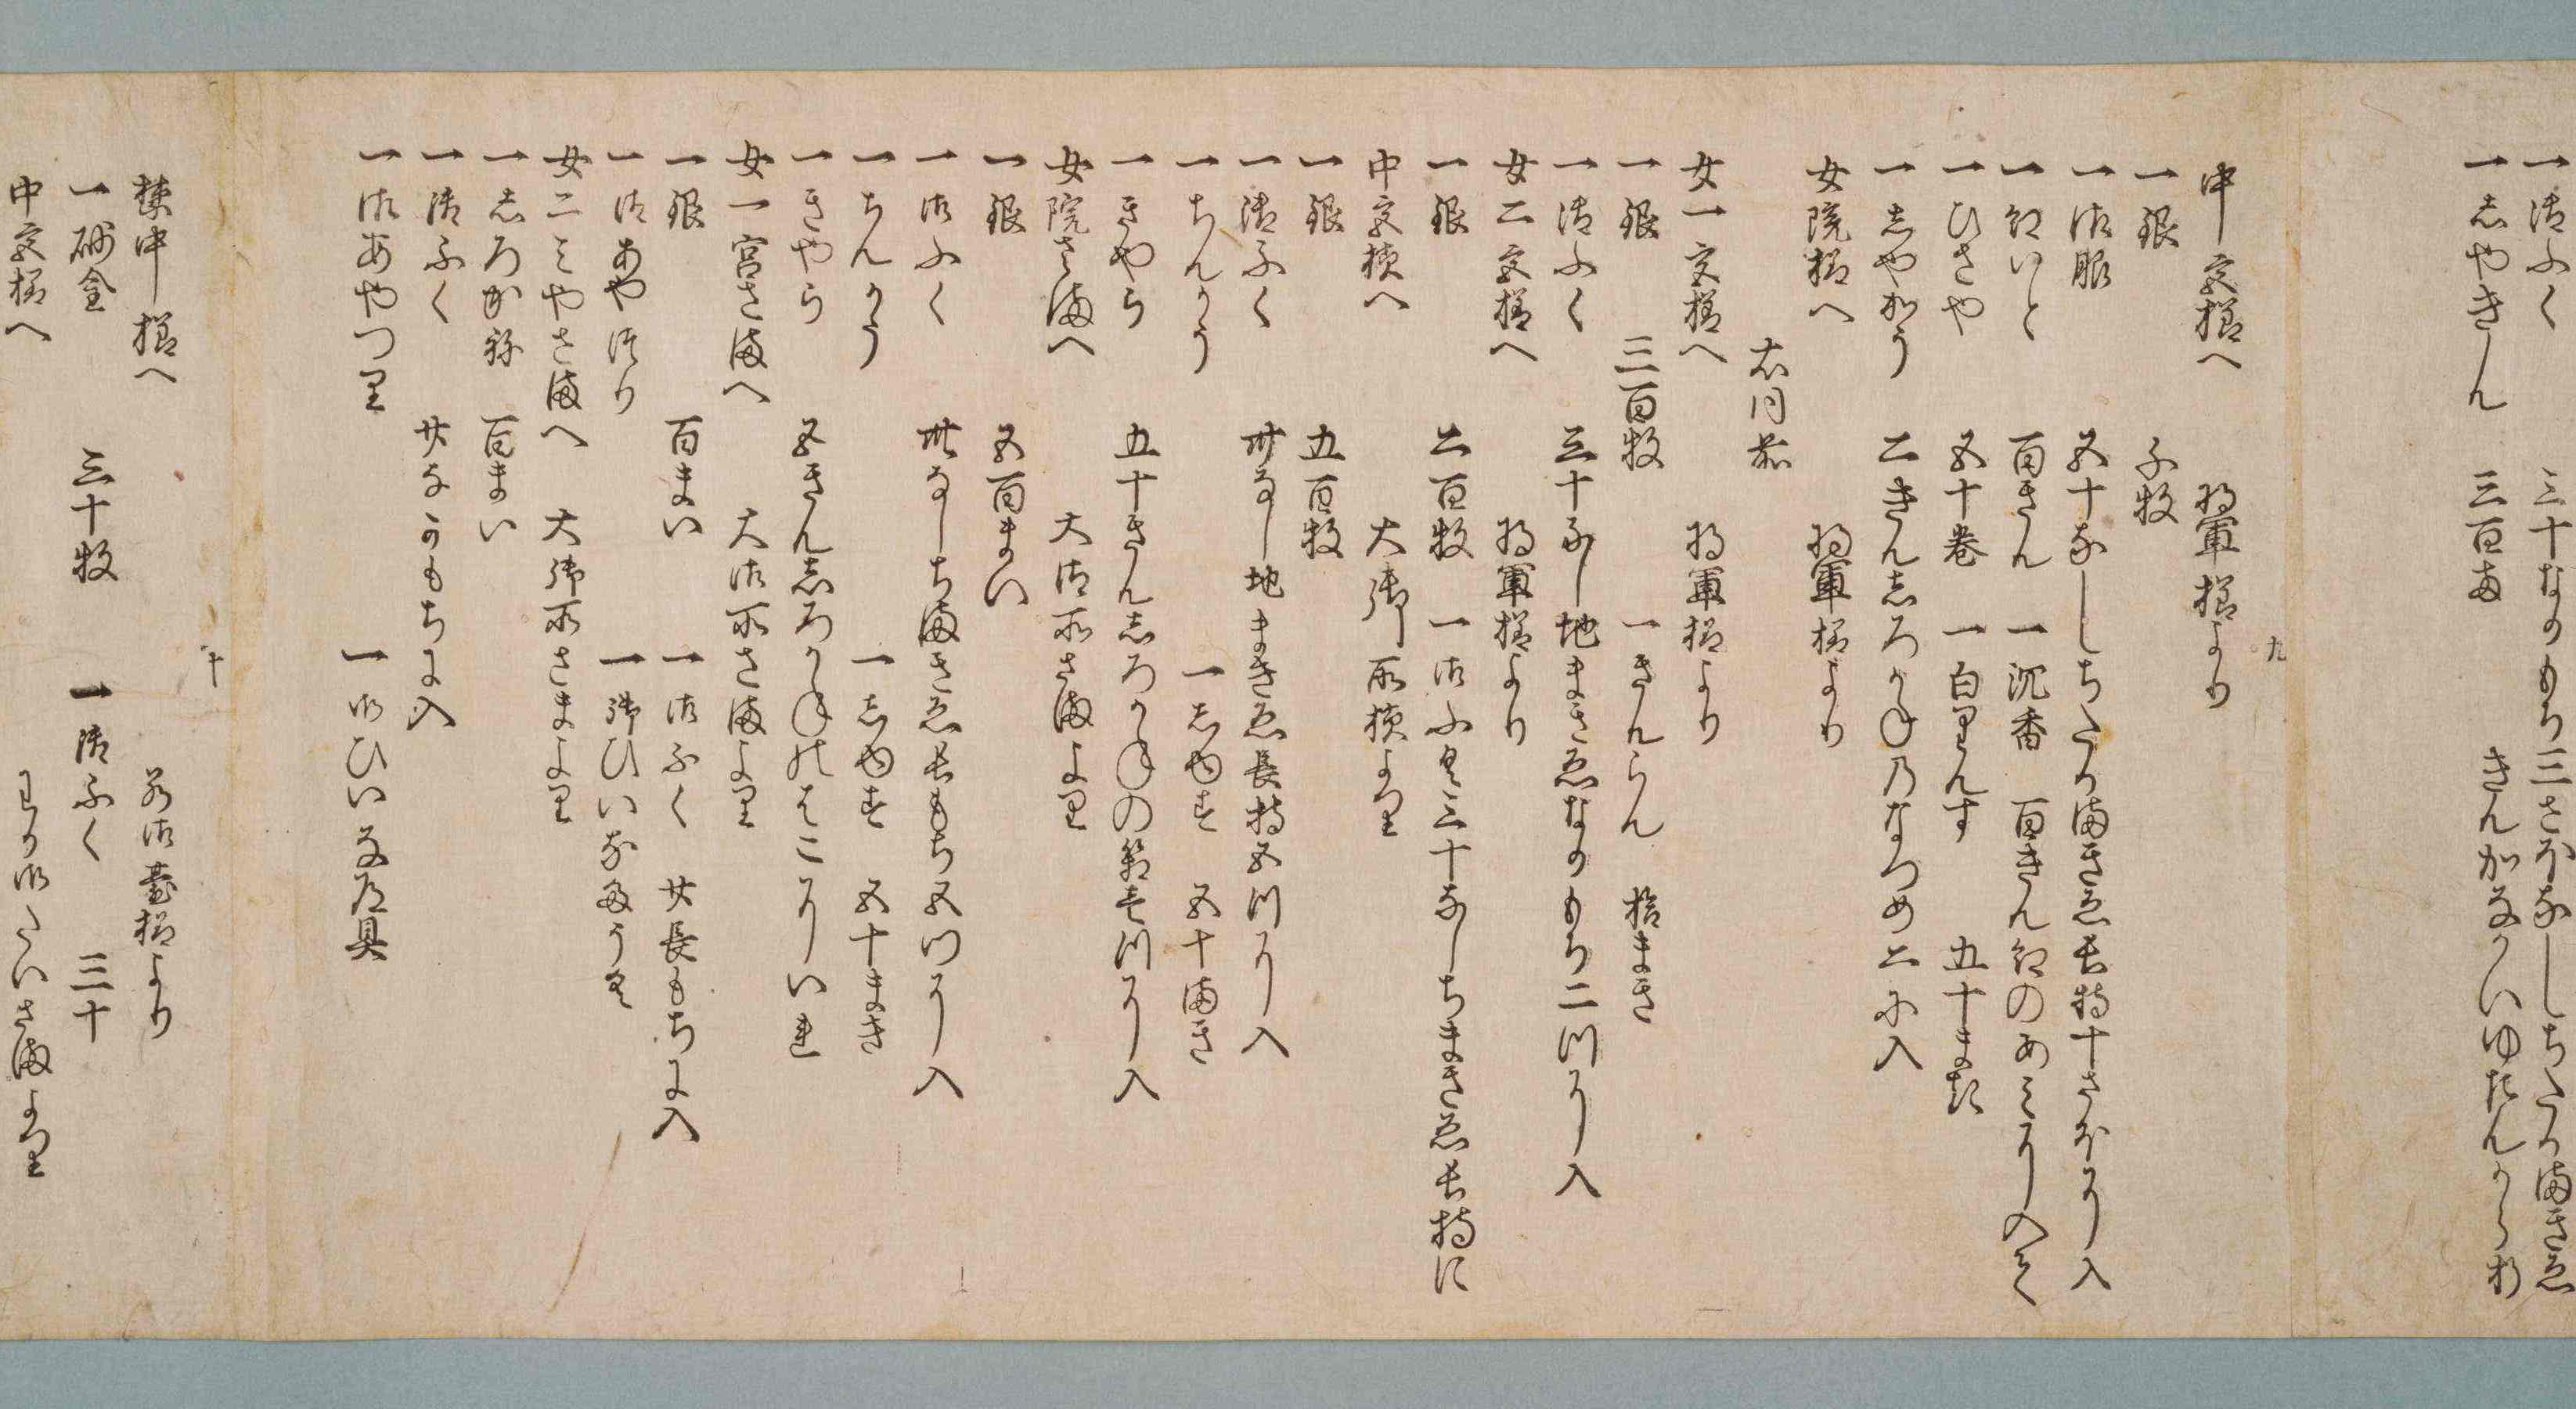 一 御ふく 三十なかもち三さほなしちたかまきゑ
一 志やきん 三百両 きんかなかいゆたんから打
九
中宮様へ 将軍様より
一 銀 千枚
一 御服 五十なしちたかまきゑ長持十さほに入
一 紅いと 百きん 一 沉香 百きん紅のあミに入て
一 ひさや 五十巻 一 白りんす 五十まき
一 志やかう 二きん志ろかねのなつめ二に入
女院様へ 将軍様より
右同前
女一宮様へ 将軍様より
一 銀 三百枚 一 きんらん 拾まき
一 御ふく 三十なし地まきゑなかもち二つに入
女二宮様へ 将軍様より
一 銀 二百枚 一 御ふく三十なしちまきゑ長持に
中宮様へ 大御所様より
一 銀 五百枚
一 御ふく 卅なし地まきゑ長持五つに入
一 ちんかう 一 志ゆす 五十まき
一 きやら 五十きん志ろかねの箱壱つに入
女院さまへ 大御所さまより
一 銀 五百まい
一 御ふく 卅なしちまきゑ長もち五つに入
一 ちんかう 一 志ゆす 五十まき
一 きやら 五きん志ろかねのはこにいれ
女一宮さまへ 大御所さまより
一 銀 百まい 一 御ふく 廿長もちに入
一 御あやつり 一 御ひいなたうく
女二ミやさまへ 大御所さまより
一 志ろかね 百まい
一 御ふく 廿なかもちに入
一 御あやつり 一 御ひいな道具
十
禁中様へ 若御臺様より
一 砂金 三十枚 一 御ふく 三十
中宮様へ わか御たいさまより